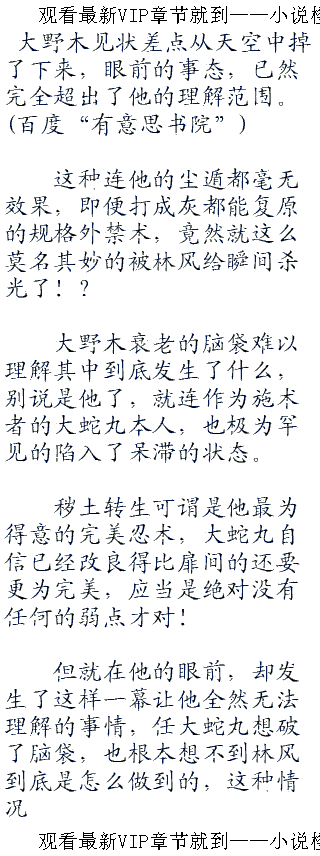 观看最新VIP章节就到——小说检
大野木见状差点从天空中掉
了下来，眼前的事态，已然
完全超出了他的理解范围。
(百度“有意思书院”)
这种连他的尘遁都毫无
效果，即便打成灰都能复原
的规格外禁术，竟然就这么
莫名其妙的被林风给瞬间杀
光了！？
大野木衰老的脑袋难以
理解其中到底发生了什么，
别说是他了，就连作为施术
者的大蛇丸本人，也极为罕
见的陷入了呆滞的状态。
秽土转生可谓是他最为
得意的完美忍术，大蛇丸自
信已经改良得比扉间的还要
更为完美，应当是绝对没有
任何的弱点才对！
但就在他的眼前，却发
生了这样一幕让他全然无法
理解的事情，任大蛇丸想破
了脑袋，也根本想不到林风
到底是怎么做到的，这种情
况
观看最新VIP章节就到——小说检